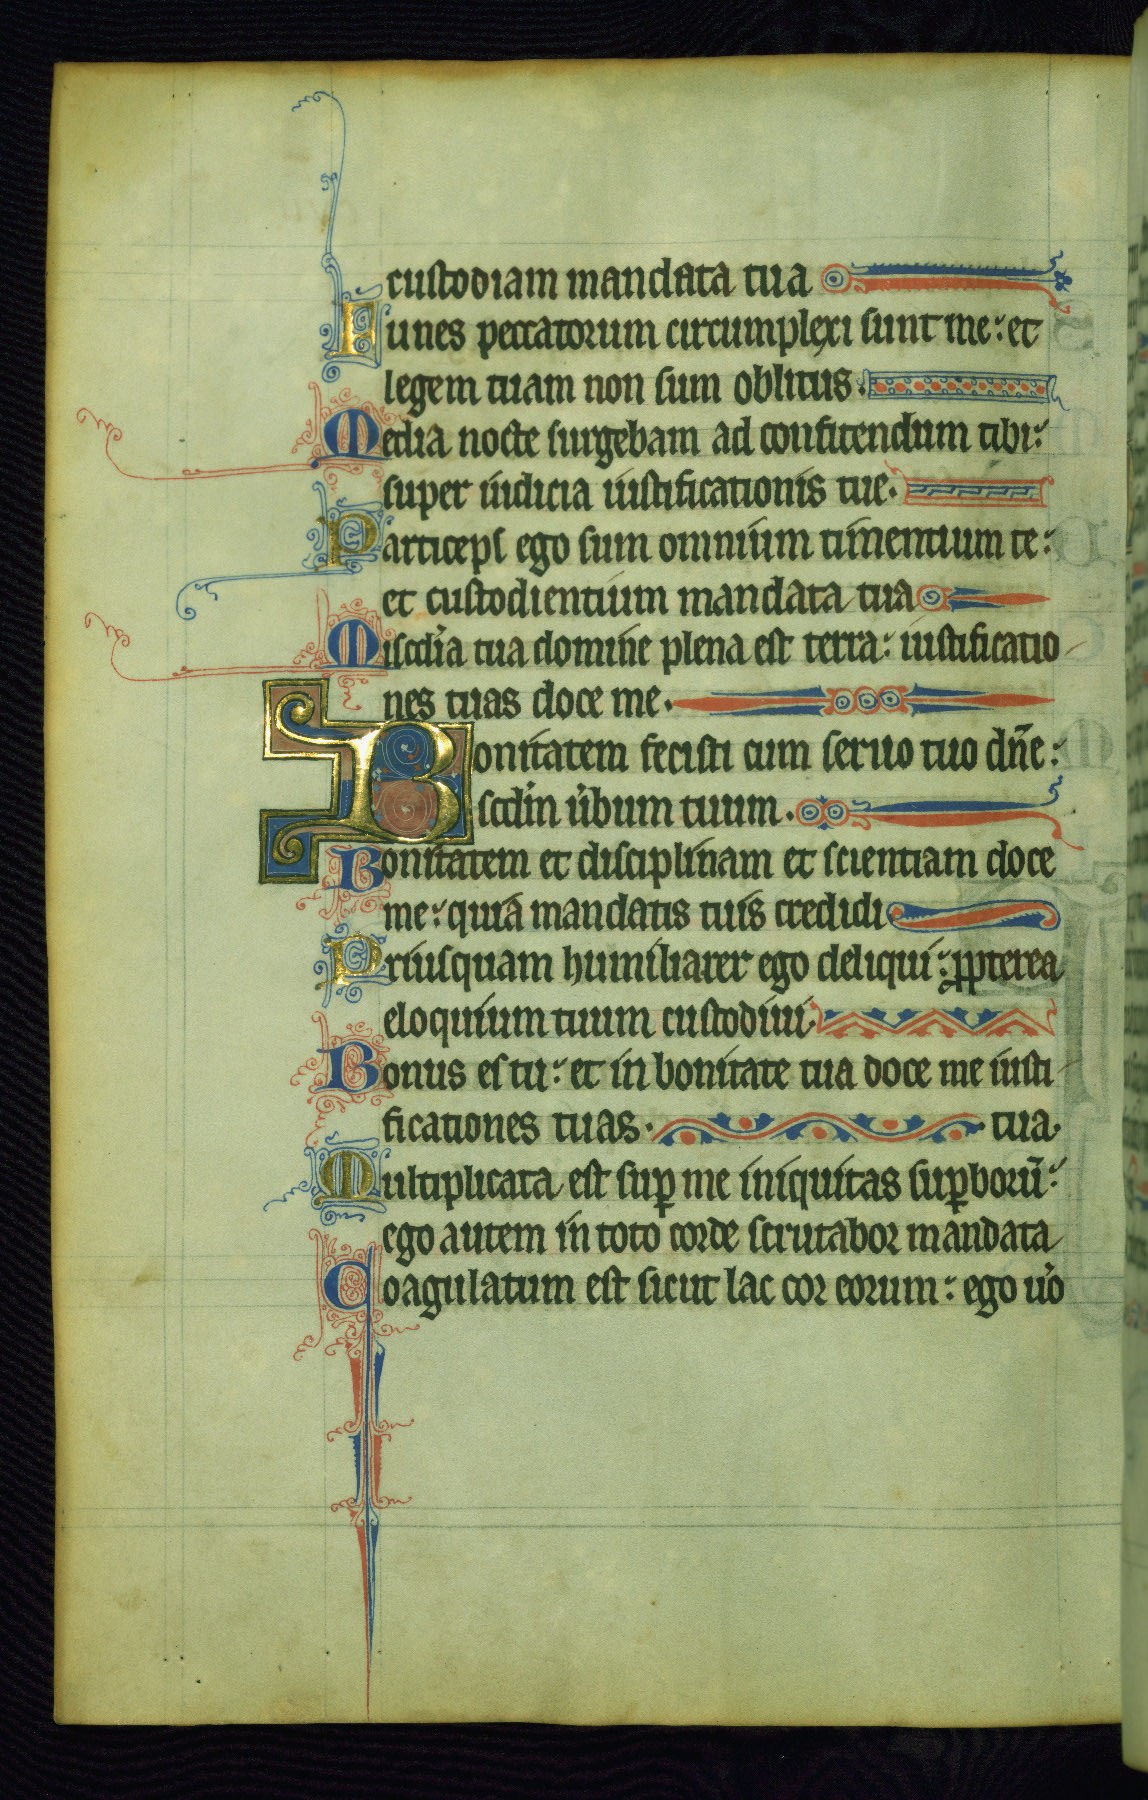 custodiam mandata tua
Funes peccatorum circumplexi sunt me: et
legem tuam non sum oblitus.
Media nocte surgebam ad confitendum tibi:
super iudicia iustificationis tue.
Particeps ego sum omnium timentium te:
et custodientium mandata tua
Miscdīa tua domine plena est terra: iustificatio
nes tuas doce me.
Bonitatem fecisti cum seruo tuo dn̄e:
scdm̄ ūbum tuum.
Bonitatem et disciplinam et scientiam doce
me: quia mandatis tuis credidi
Priusquam humiliarer ego deliqui: ꝓpterea
eloquium tuum custodiui
Bonus es tu: et in bonitate tua doce me iusti
ficationes tuas. tua.
Multiplicata est suꝑ me iniquitas suꝑborū:
ego autem in toto corde scrutabor mandata
Coagulatum est sicut lac cor eorum: ego u̓o